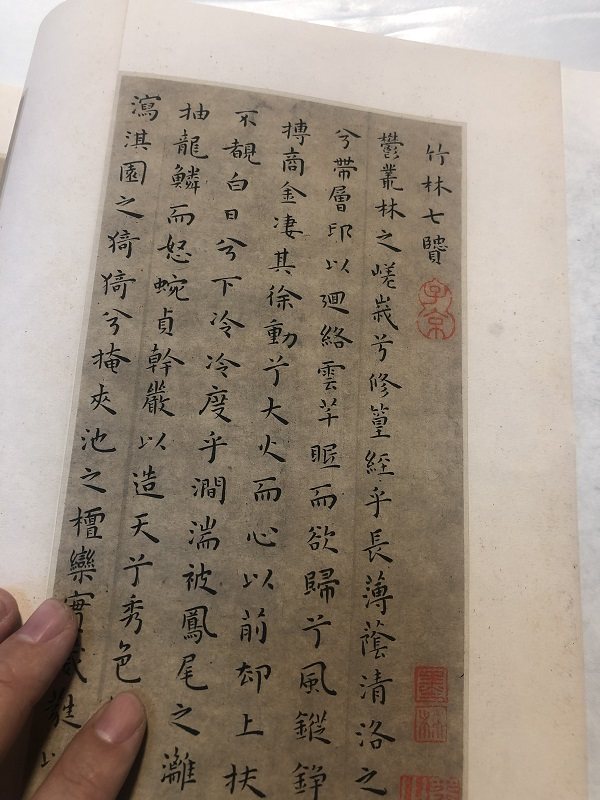 竹林七賢
子京
鬱叢林之嵯峩兮修篁經乎長薄蔭清洛之
兮帶層邙以迴絡雲芊眠而欲歸兮風鏦錚
摶商金凄其徐動兮大火而心以前却上扶
不覩白日兮下冷冷度乎澗湍被鳳尾之灕
抽龍鱗而怒蜿貞幹嚴以造天兮秀色
瀉淇園之猗猗兮掩夾池之檀欒實
墨林